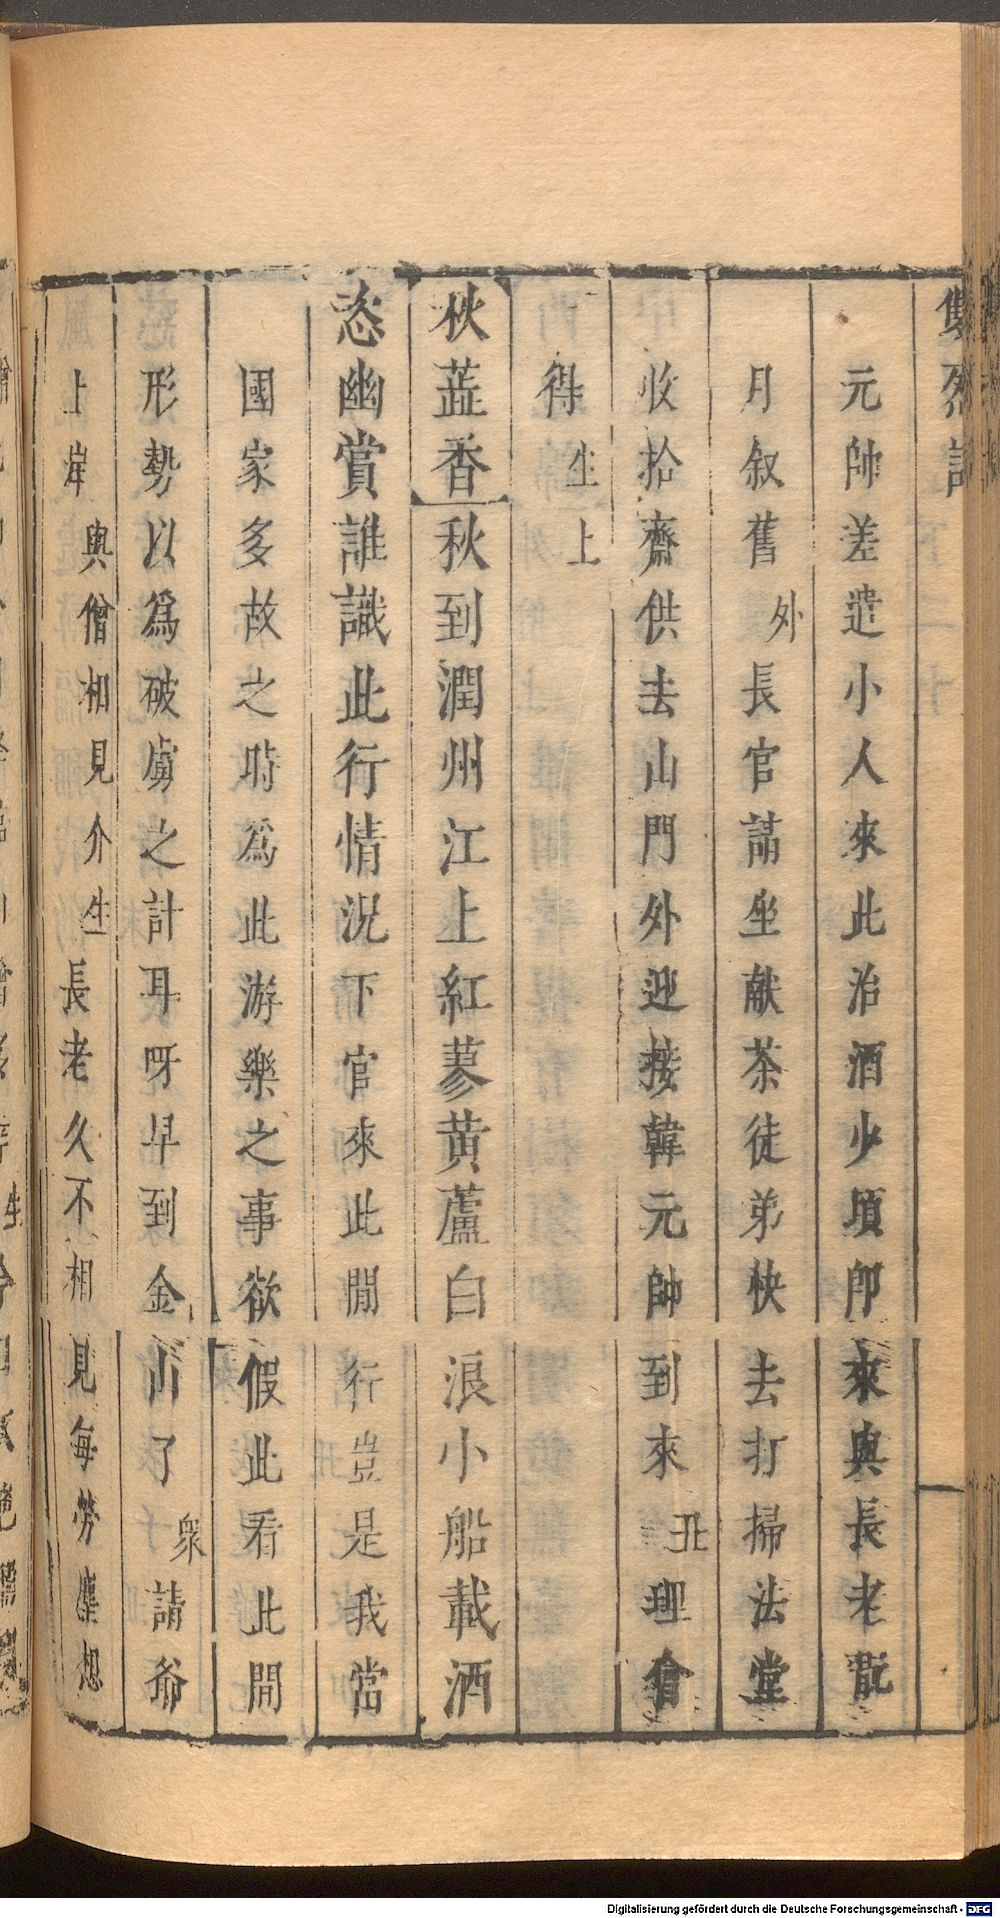 雙烈記
元帥差遣小人來此治酒少頃卽來與長老說
月叙舊外長官請坐献茶徒弟快去打掃法堂
收拾齋供去山門外迎接韓元帥到來丑理會
得生上
秋蕋香秋到潤州江上紅蓼黄蘆白浪小船載酒
恣幽賞誰識此行情況下官來此閒行豈是我當
國家多故之時爲此游樂之事欲假此看此間
形勢以爲破虜之計耳呀早到金山了衆請爺
上岸與僧相見介生長老久不相見每勞塵想
Digitalisierung gefördert durch die Deutsche Forschungsgemeinschaft - DFG